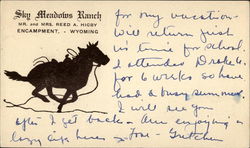 Sky Meadows Ranch
MR. and MRS. REED A. HIGBY
ENCAMPMENT, - WYOMING
for my vacation-
Will return just
in time for school.
I attended Drake U.
for 6 weeks so have
had a busy summer.
I will see you
after I get back - Am enjoying a
lazy life here - Love - Gretchen